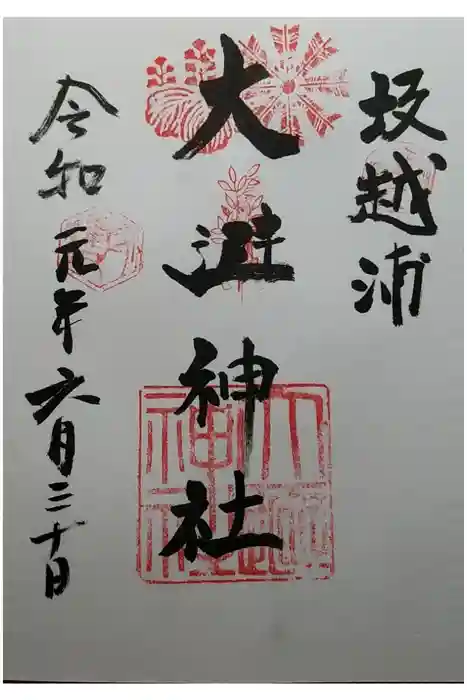 坂越浦
大避神社
令和元年六月三十日